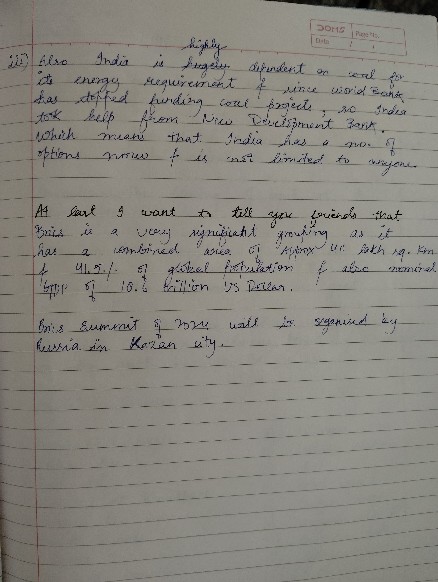 DOMS Page No.
Date
highly
iii) Also India is hugely dependent on coal for
its energy requirement & since World Bank
has stopped funding coal projects, so India
took help from New Development Bank.
Which means that India has a no. of
options now & is not limited to anyone.
At last I want to tell you friends that
Brics is a very significant grouping as it
has a combined area of Approx lakh sq. Km
& 41.5% of global population & also nominal
GDP of trillion US Dollar.
Brics Summit of 2024 will be organised by
Russia in Kazan city.